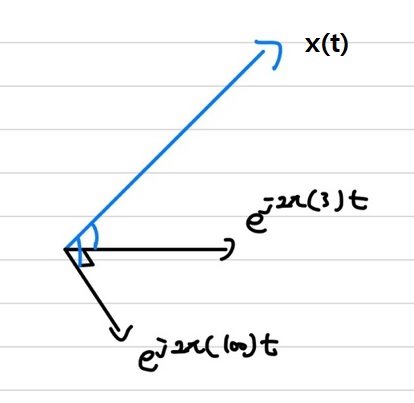 x(t)
e^{j2π(3)t}
e^{j2π(100)t}